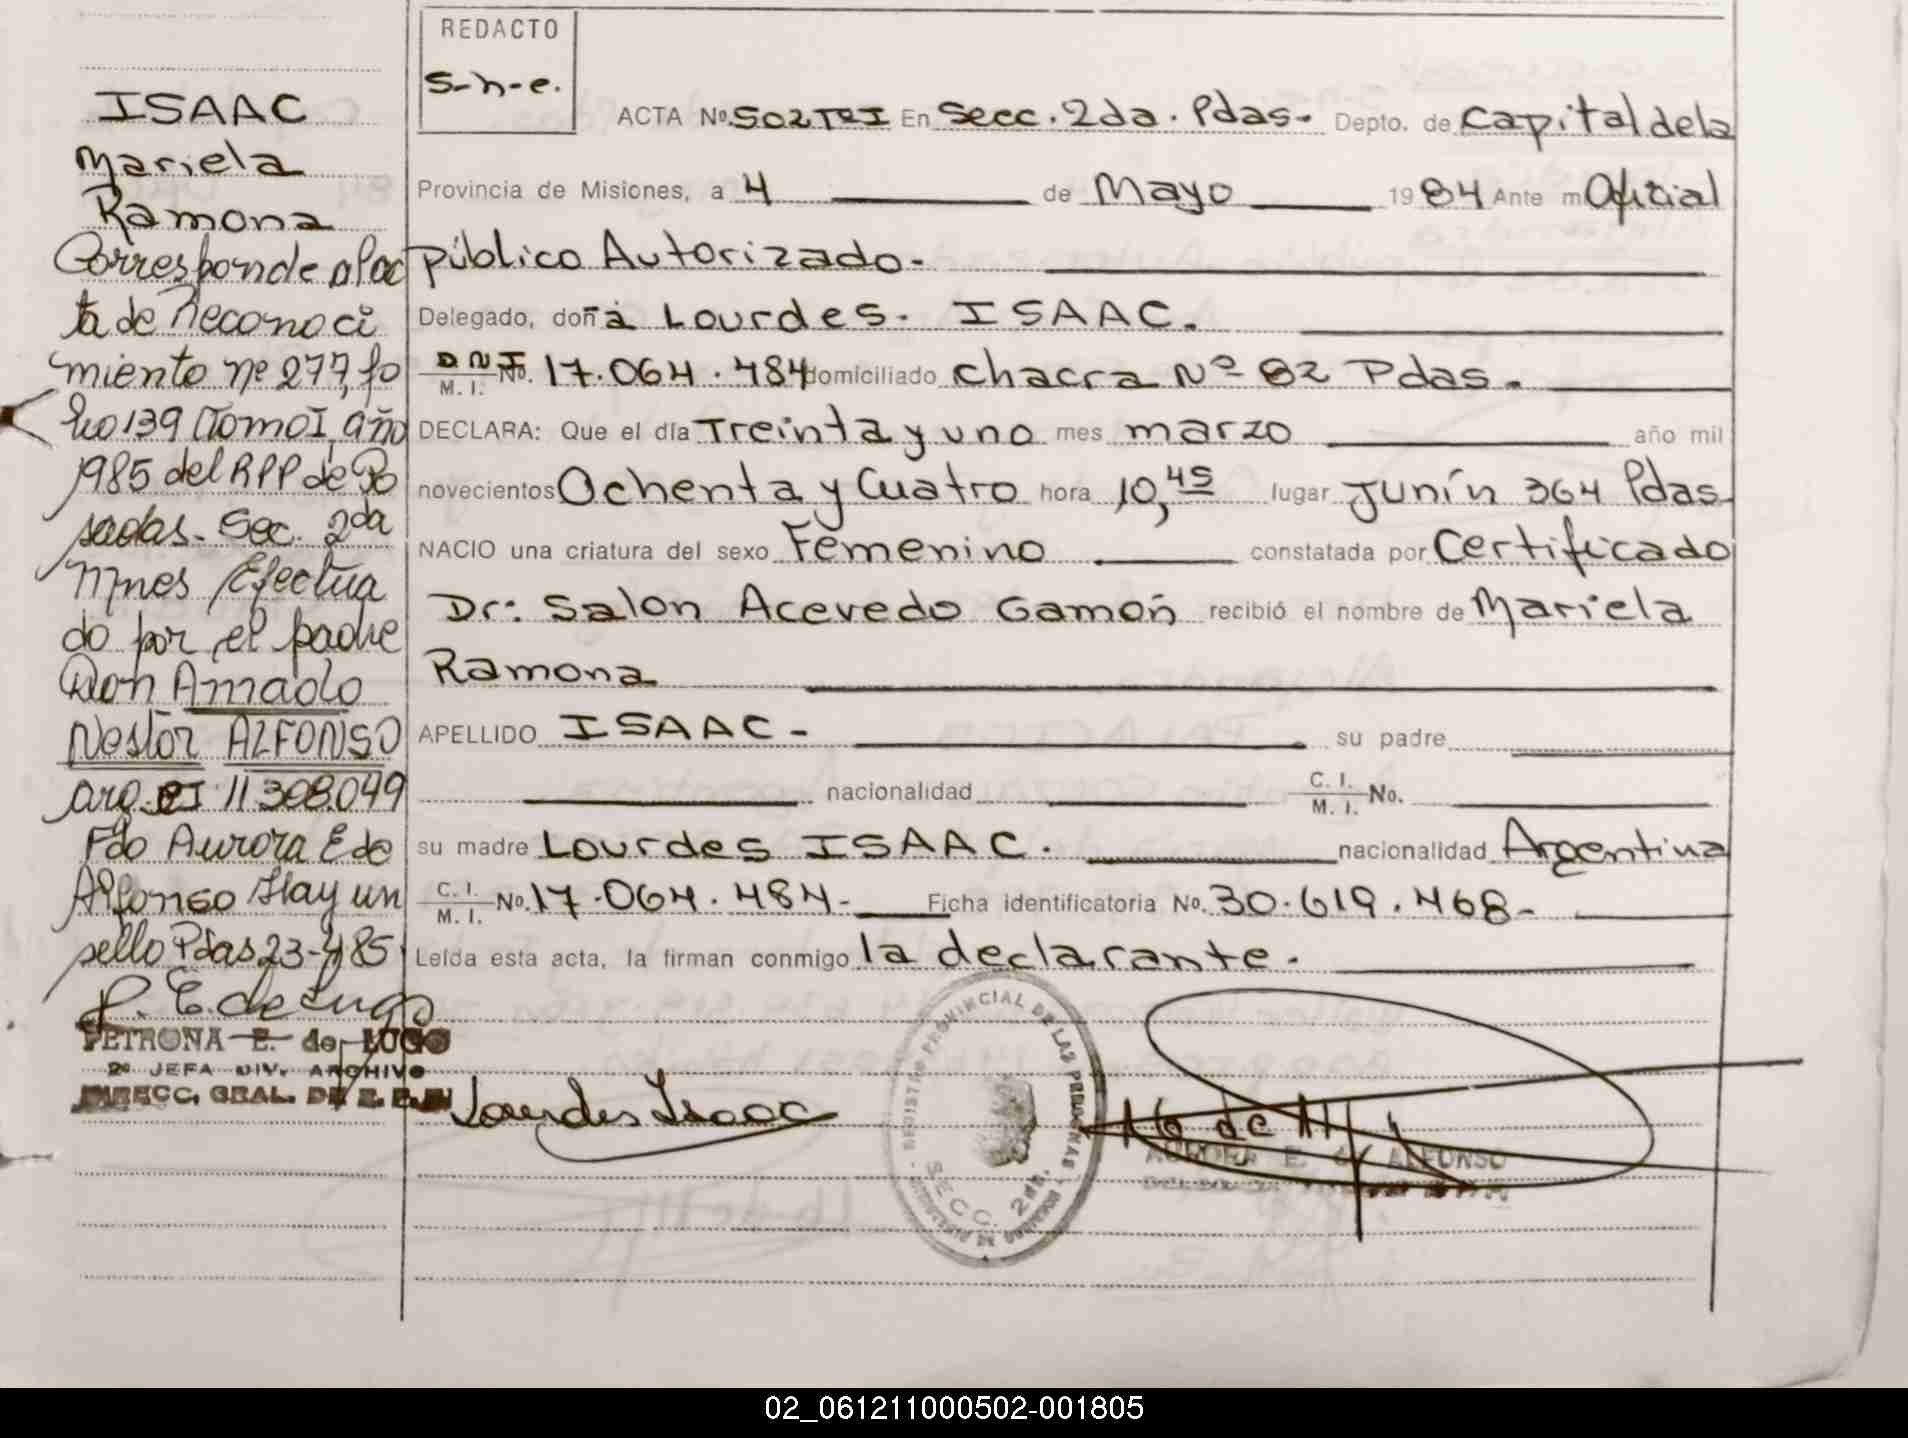 ISAAC
Mariela
Ramona
Corresponde al ac
ta de Reconoci
miento nº 277, fo
lio 139 Tomo I, año
1985 del RPP de Po
sadas. Sec. 2da
Mnes Efectua
do por el padre
Don Amado
Nestor ALFONSO
arg. 11308.049
Fdo Aurora E de
Alfonso Hay un
sello Pdas 23-4 85
P. E. de Lugo
PETRONA E. de LUGO
2ª JEFA DIV. ARCHIVO
DIRECC. GRAL. DE
REDACTO
S-n-e.
ACTA No. 502 TºI En Secc. 2da. Pdas. Depto. de Capital de la
Provincia de Misiones, a 4 de Mayo 1984 Ante mi Oficial
público Autorizado.
Delegado, doña Lourdes. ISAAC.
DNI M. I. No. 17.064.484 domiciliado chacra Nº 82 Pdas.
DECLARA: Que el día Treinta y uno mes marzo año mil
novecientos Ochenta y Cuatro hora 10,45 lugar Junín 364 Pdas
NACIO una criatura del sexo Femenino constatada por Certificado
Dr: Salon Acevedo Gamoñ recibió el nombre de Mariela
Ramona
APELLIDO ISAAC. su padre
nacionalidad C. I. M. I. No.
su madre Lourdes ISAAC. nacionalidad Argentina
C. I. M. I. No. 17.064.484- Ficha identificatoria No. 30.619.468-
Leída esta acta, la firman conmigo la declarante.
Lourdes Isaac
REGISTRO PROVINCIAL DE LAS PERSONAS
SECC. 2da.
AURORA E. de ALFONSO
02_061211000502-001805